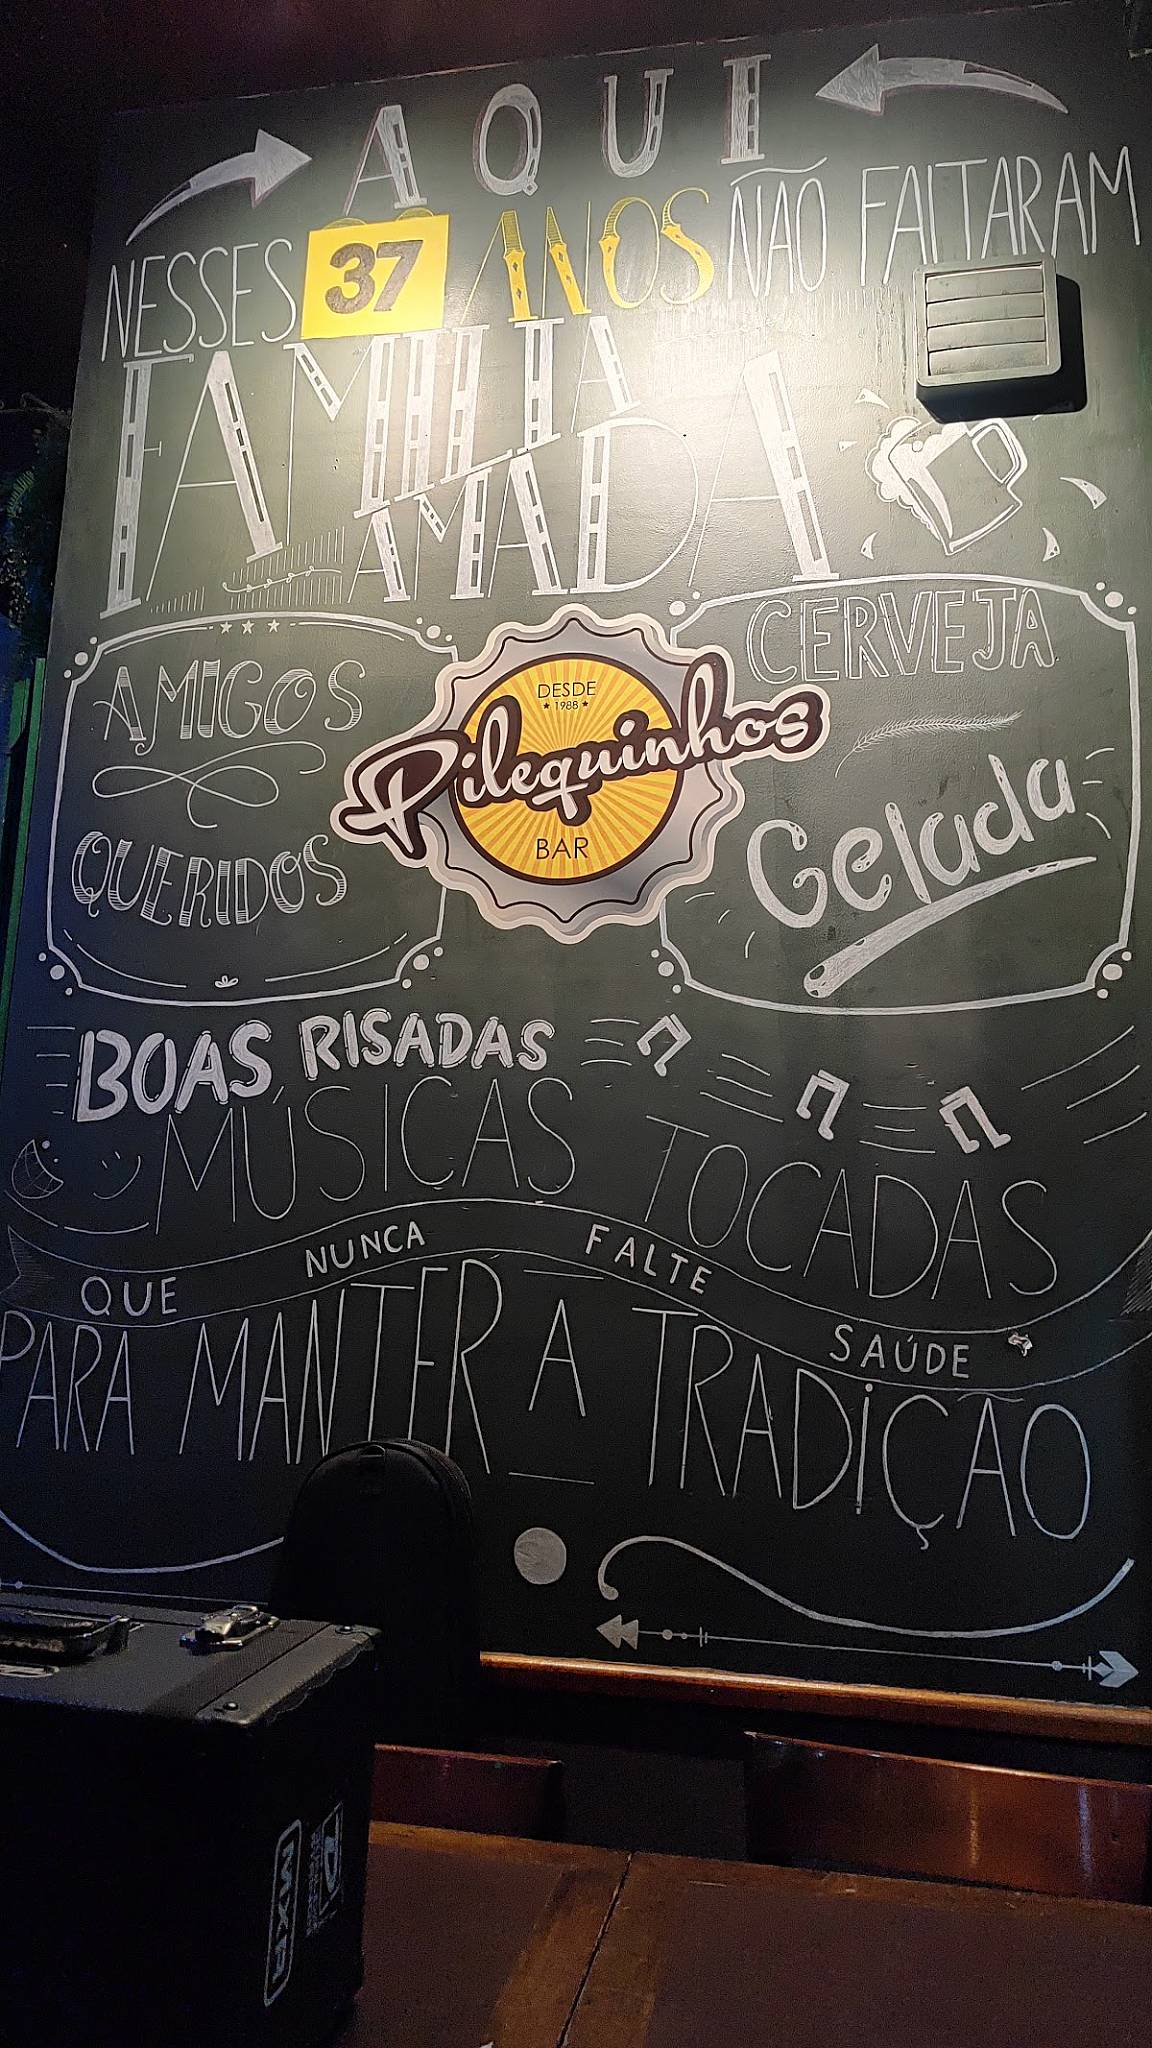 AQUI
NESSES 37 ANOS NÃO FALTARAM
FAMILIA
AMADA
AMIGOS
QUERIDOS
DESDE
1988
Pilequinhos
BAR
CERVEJA
Gelada
BOAS RISADAS
MÚSICAS TOCADAS
QUE NUNCA FALTE SAÚDE
PARA MANTER A TRADIÇÃO
MXR